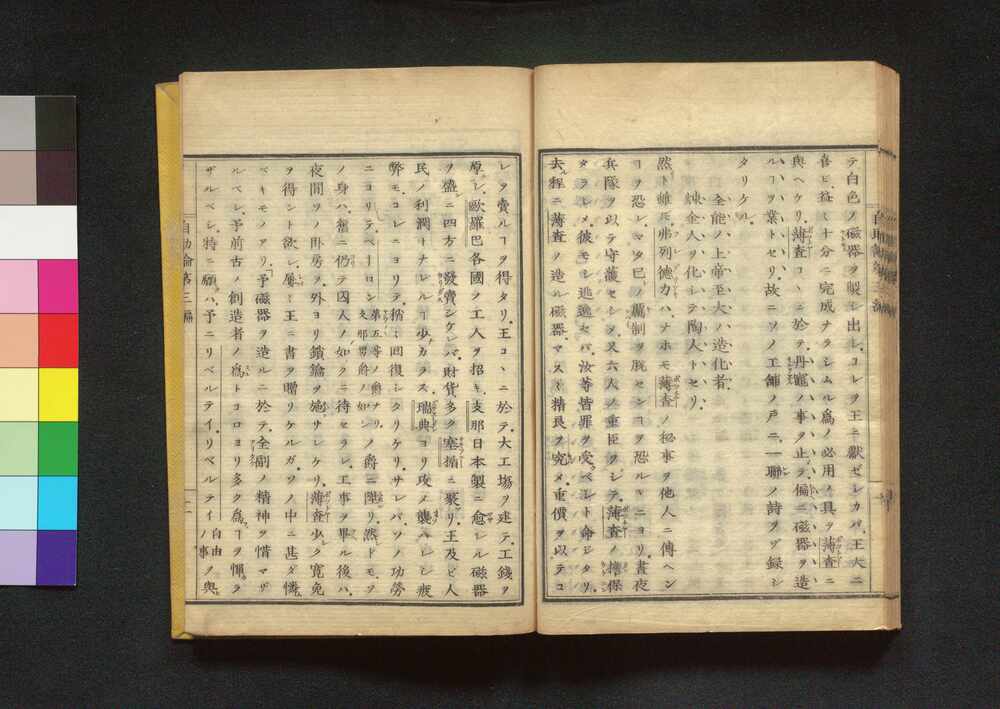 テ白色ノ磁器ヲ製シ出シ、コレヲ王ニ獻ゼシカバ、王大ニ
喜ビ、益〻十分ニ完成ナラシムル爲ノ必用ノ具ヲ薄査ニ
與ヘケリ、薄査コヽニ於テ、丹竈ノ事ヲ止ラ、偏ニ磁器ヲ造
ルヿヲ業トセリ、故ニソノ工鋪ノ戸ニ、一聯ノ詩ヲゾ録シ
タリケル。
全能ノ上帝至大ハ造化者、
煉金人ヲ化シテ陶人トセリ、
然ト雖モ弗列德力ハ、ナホモ薄査ノ秘事ヲ他人ニ傳ヘン
ヿヲ恐レ、マタ己ノ覊制ヲ脱センヿヲ恐ルヽニヨリ、晝夜
兵隊ヲ以テ守護セシメ、又六人ノ重臣ヲシテ、薄査ノ擔保
タラシメ、彼モシ逃逸セバ、汝等皆罪ヲ受ベシト命ジタリ、
去程ニ薄査ノ造ル磁器、マス〻精良ヲ究メ、重價ヲ以テコ
レヲ賣ルヿヲ得タリ、王コヽニ於テ、大工塲ヲ建テ、工錢ヲ
原シ、歐羅巴各國ノ工人ヲ招キ、支那日本製ニ愈レル磁器
ヲ盛ニ四方ニ發賣シケレバ、財貨多ク塞揗ニ聚リ、王及ビ人
民ノ利潤トナレルヿ少カラス、瑞典ヨリ攻メ襲ハレシ疲
弊モ、コレニヨリテ、稍〻回復シタリケリ、サレバ、ソノ功勞
ニヨリテ、ベーロン 第五等ノ爵ナリ、支那男爵ノ如シ ノ爵ニ陞リ、然ドモ、ソ
ノ身ハ、舊ニ仍テ囚人ノ如クニ待セラレ、工事ヲ畢ル後ハ、
夜間ソノ臥房ヲ外ヨリ鎖鑰ヲ施サレケリ、薄査少ク寛免
ヲ得ント欲シ、屡〻王ニ書ヲ贈リケルガ、ソノ中ニ甚ダ憐ム
ベキモノアリ、予磁器ヲ造ルニ於テ、全副ノ精神ヲ惜マザ
ルベシ、予前古ノ創造者ノ爲トコロヨリ多ク爲ヿヲ憚ラ
ザルベシ、特ニ願ハ、予ニリベルテイ、リベルテイ 自由ノ事 ヲ與
自助論第三編